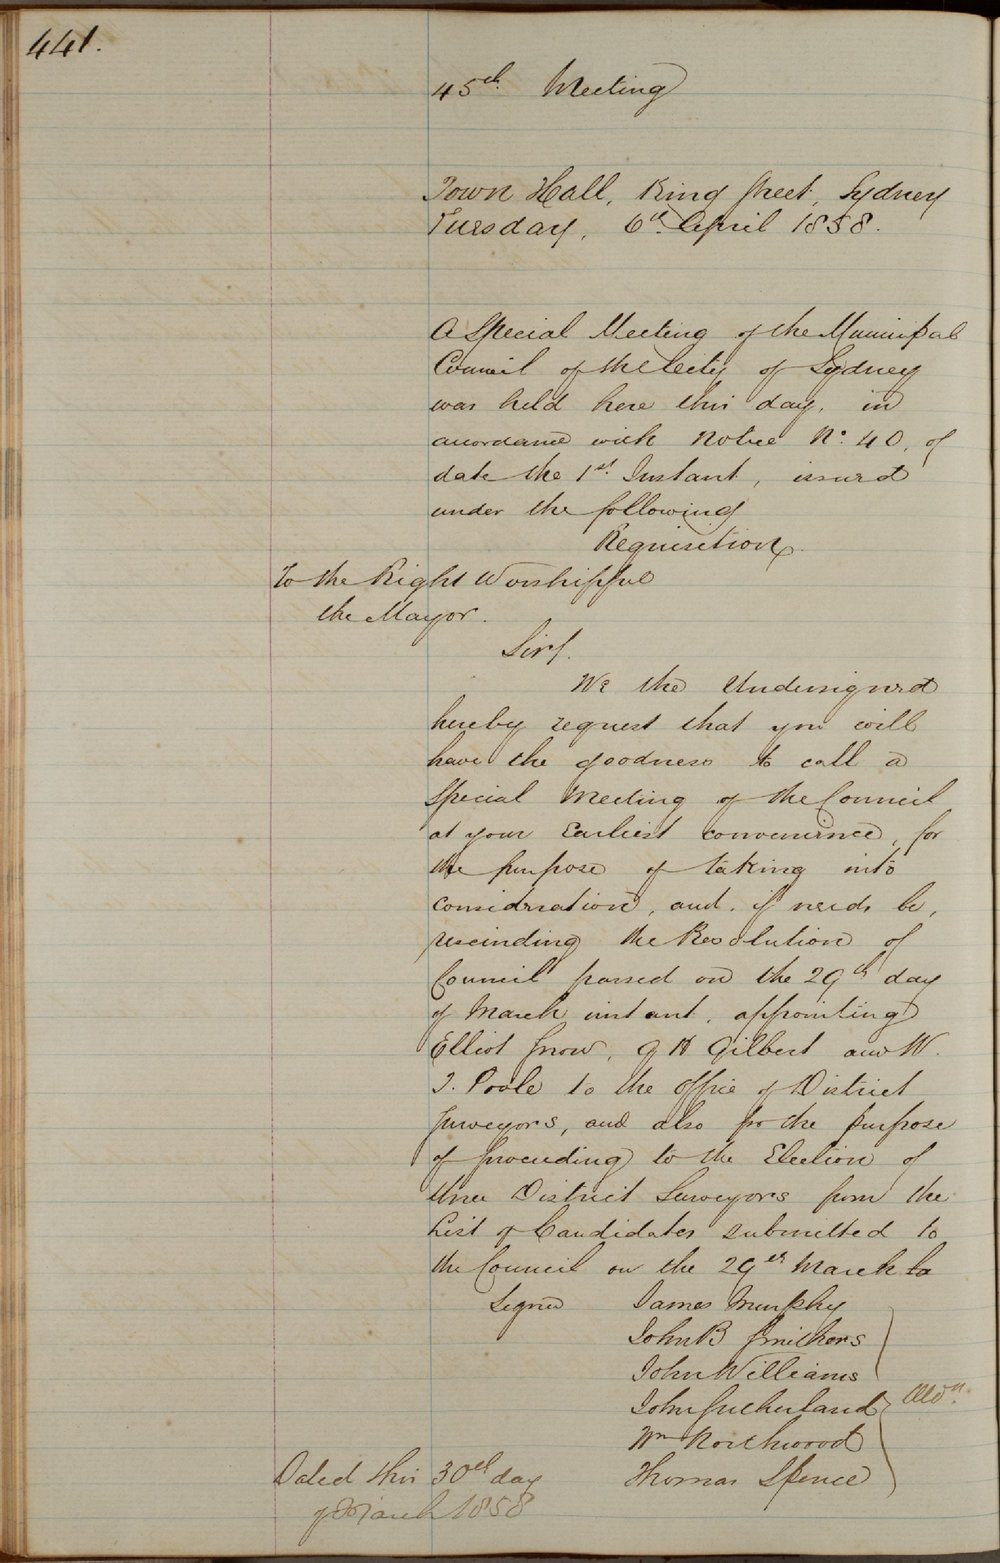 441.
45th Meeting
Town Hall, King Street, Sydney
Tuesday, 6th April 1858.
A Special Meeting of the Municipal
Council of the City of Sydney
was held here this day, in
accordance with Notice No. 40, of
date the 1st Instant, issued
under the following
Requisition.
To the Right Worshipful
the Mayor.
Sir,
We the Undersigned
hereby request that you will
have the goodness to call a
Special Meeting of the Council
at your Earliest convenience, for
the purpose of taking into
consideration, and if needs be,
rescinding the Resolution of
Council passed on the 29th day
of March instant, appointing
Elliot Snow, G H Gilbert and W.
J. Poole to the Office of District
Surveyors, and also for the purpose
of proceeding to the Election of
three District Surveyors from the
List of Candidates submitted to
the Council on the 29th March
Signed James Murphy
John B Smithers
John Williams
John Sutherland Aldn.
Wm Northwood
Thomas Spence
Dated this 30th day
of March 1858